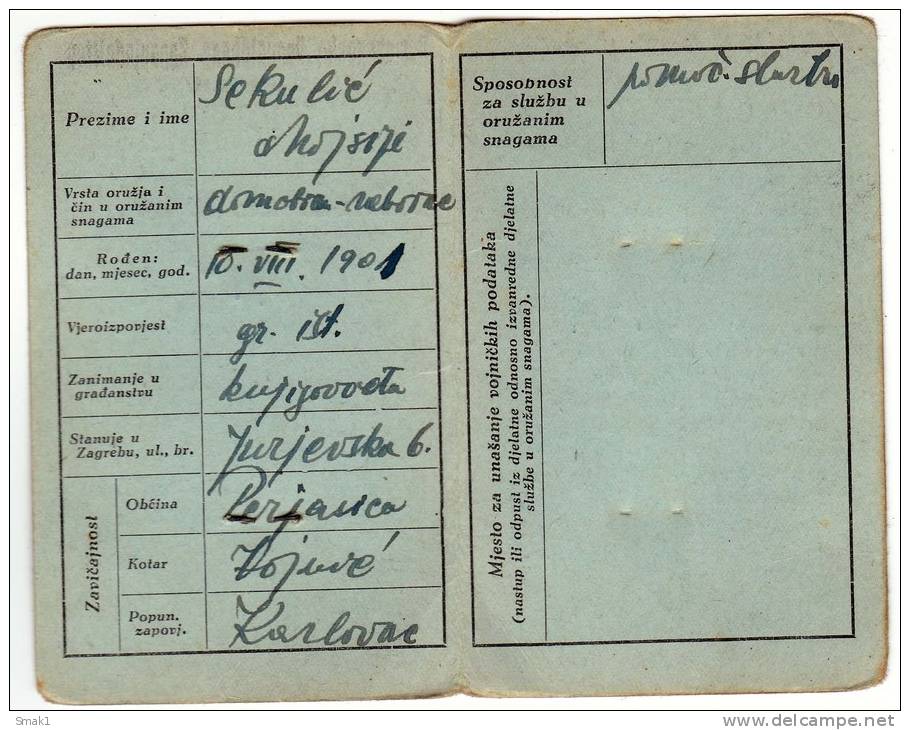 Prezime i ime
Sekulić
Mojsije
Vrsta oružja i
čin u oružanim
snagama
domobran-
Rođen:
dan, mjesec, god.
10. VIII. 1901
Vjeroizpovjest
gr. išt.
Zanimanje u
građanstvu
knjigovođa
Stanuje u
Zagrebu, ul., br.
Jurjevska 6.
Zavičajnost
Občina
Perjasica
Kotar
Vojnić
Popun.
zapovj.
Karlovac
Sposobnost
za službu u
oružanim
snagama
pomoć.
Mjesto za unašanje vojničkih podataka
(nastup ili odpust iz djelatne odnosno izvanredne djelatne
službe u oružanim snagama).
Smak1
delcampe.net